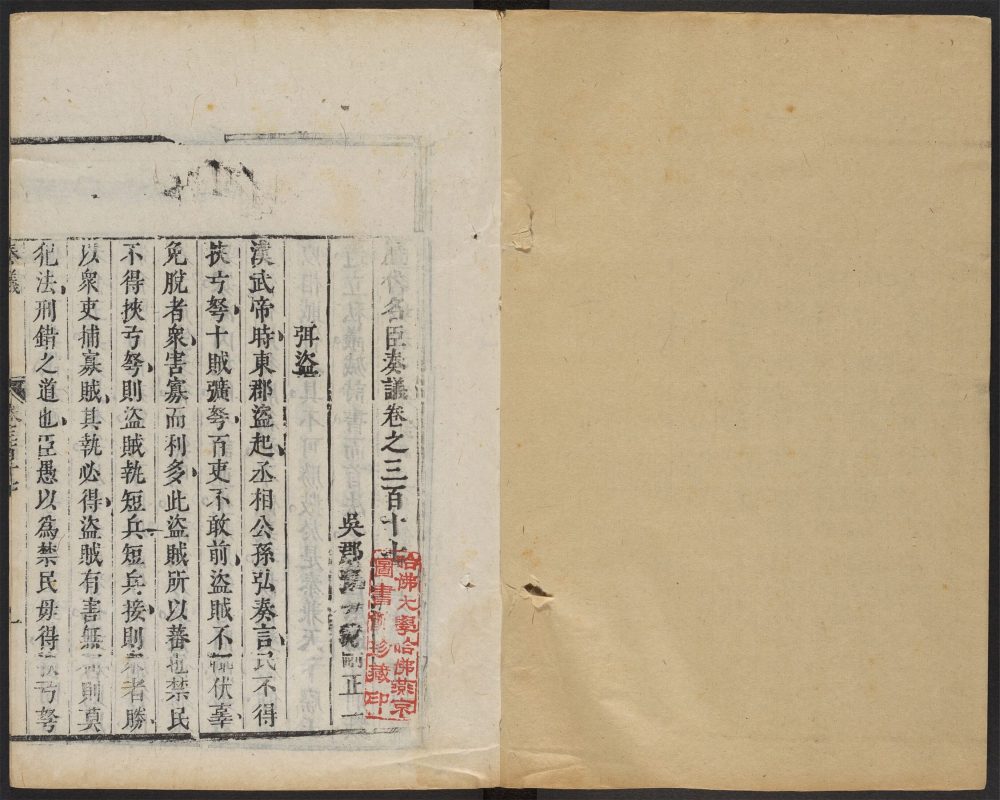 歷代名臣奏議卷之三百十七
吳郡張溥刪正
弭盜
漢武帝時東郡盜起丞相公孫弘奏言民不得
挾弓弩十賊彍弩百吏不敢前盜賊不輒伏辜
免脫者衆害寡而利多此盜賊所以蕃也禁民
不得挾弓弩則盜賊執短兵短兵接則衆者勝
以衆吏捕寡賊其執必得盜賊有害無利則莫
犯法刑錯之道也臣愚以爲禁民毋得挾弓弩
奏議
卷三百十七
一
哈佛大學哈佛燕京
圖書館珍藏印